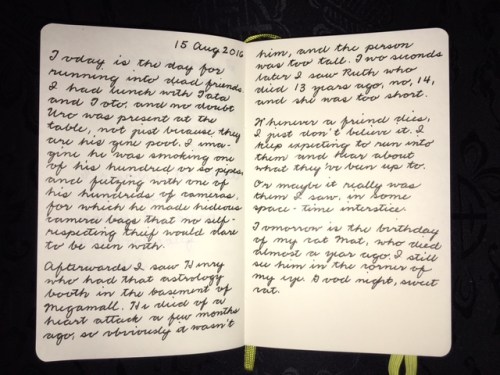 15 Aug 2016
Today is the day for
running into dead friends.
I had lunch with Tata
and Toto, and no doubt
Uro was present at the
table, not just because they
are his gene pool. I ima-
gine he was smoking one
of his hundred or so pipes,
and futzing with one of
his hundreds of cameras,
for which he made hideous
camera bags that no self-
respecting thief would dare
to be seen with.
Afterwards I saw Henry
who had that astrology
booth in the basement of
Megamall. He died of a
heart attack a few months
ago, so obviously it wasn't
him, and the person
was too tall. Two seconds
later I saw Ruth who
died 13 years ago, no, 14,
and she was too short.
Whenever a friend dies,
I just don't believe it. I
keep expecting to run into
them and hear about
what they've been up to.
Or maybe it really was
them I saw, in some
space-time interstice.
Tomorrow is the birthday
of my cat Mat, who died
almost a year ago. I still
see him in the corner of
my eye. Good night, sweet
cat.